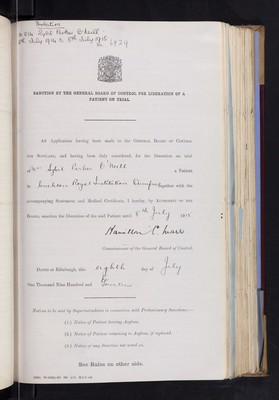 Probation
Sybil Parker O'Neill
8th July 1914 to 8th July 1915
SANCTION BY THE GENERAL BOARD OF CONTROL FOR LIBERATION OF A
PATIENT ON TRIAL
An Application having been made to the GENERAL BOARD OF CONTROL
FOR SCOTLAND, and having been duly considered, for the Liberation on trial
of Sybil Parker O'Neill
a Patient
in Crichton Royal Institution Dumfries together with the
accompanying Statement and Medical Certificate, I hereby, by AUTHORITY OF THE
BOARD, sanction the Liberation of the said Patient until 8th July 1915
Hamilton C. Marr
Commissioner of the General Board of Control.
DATED at Edinburgh, this eighth day of July
One Thousand Nine Hundred and Fourteen
Notices to be sent by Superintendents in connection with Probationary Sanctions:—
(1.) Notice of Patient leaving Asylum.
(2.) Notice of Patient returning to Asylum, if replaced.
(3.) Notice of any Sanction not acted on.
See Rules on other side.